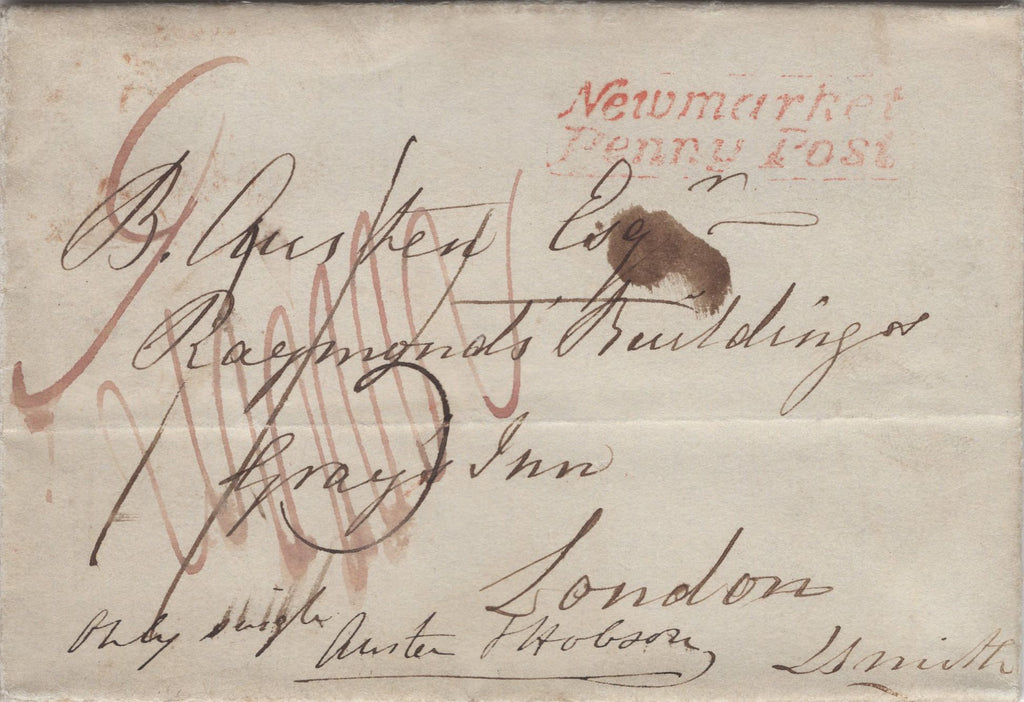 Newmarket
Penny Post
B. Austen Esqr
Raymonds Buildings
Grays Inn
London
Only single
Austen & Hobson